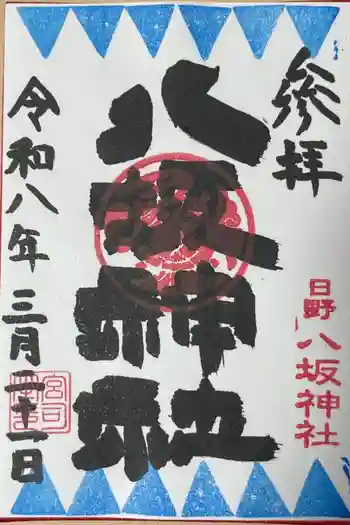 参拝
日野
八坂神社
八坂神社
令和八年三月二十一日
宮司